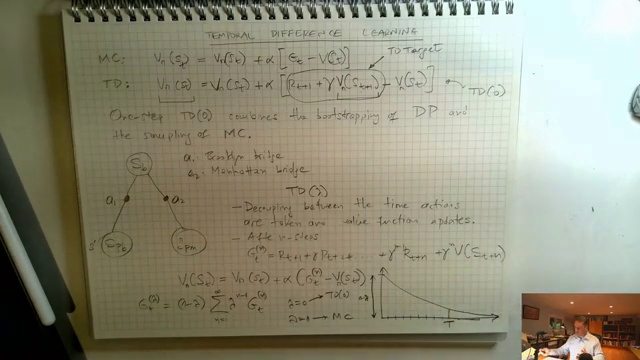 TEMPORAL DIFFERENCE LEARNING
MC: Vπ(St) = Vπ(St) + α [Gt - V(St)]
TD Target
TD: Vπ(St) = Vπ(St) + α [Rt+1 + γ Vπ(St+1) - Vπ(St)]
TD(0)
One-step TD(0) combines the bootstrapping of DP and
the sampling of MC.
a1: Brooklyn bridge
a2: Manhattan bridge
S6
a1
a2
TD(λ)
- Decoupling between the time actions
are taken and value function updates.
- After n-steps
Gt(n) = Rt+1 + γ Rt+2 + ... + Rt+n + γ^n V(St+n)
Vπ(St) = Vπ(St) + α (Gt(n) - Vπ(St))
Gt(λ) = (1-λ) Σ λ^n-1 Gt(n)
n=1
λ=0 → TD(0)
λ=1 → MC
1-λ
T